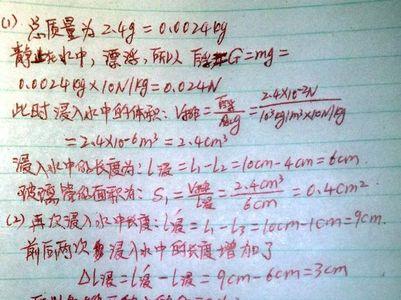 (1) 总质量为 2.4g = 0.0024kg
静止在水中，漂浮，所以 F浮=G=mg=
0.0024kg×10N/kg=0.024N
此时浸入水中的体积：V排=F浮/ρ水g=2.4×10⁻²N/10³kg/m³×10N/kg
=2.4×10⁻⁶m³=2.4cm³
浸入水中的长度为：L浸=L₁-L₂=10cm-4cm=6cm.
玻璃管的面积为：S₁=V排/L浸=2.4cm³/6cm=0.4cm².
(2) 再次浸入水中长度：L浸'=L₁-L₃=10cm-1cm=9cm.
前后两次浸入水中的长度增加了
ΔL浸=L浸'-L浸=9cm-6cm=3cm